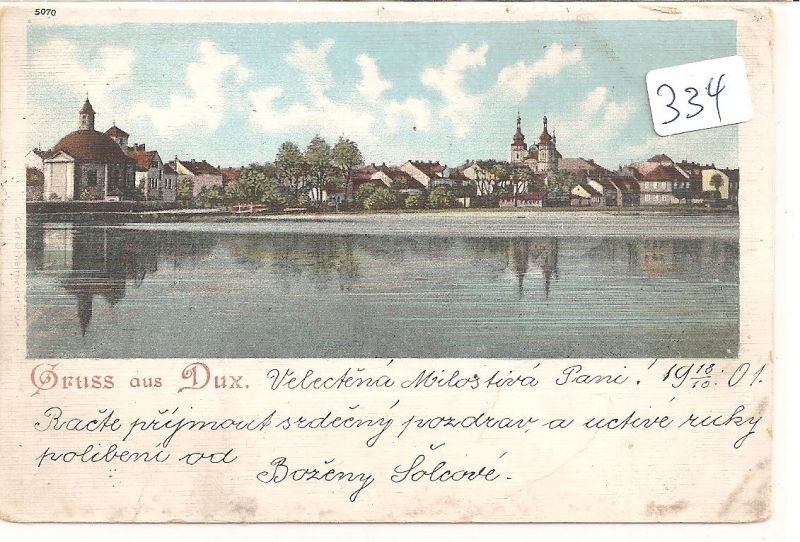 5070
334
Gruss aus Dux. Velectěná Milostivá Pani! 19 18/10. 01.
Račte přijmout srdečný pozdrav, a uctivé ruky
polibení od
Boženy Šolcové.